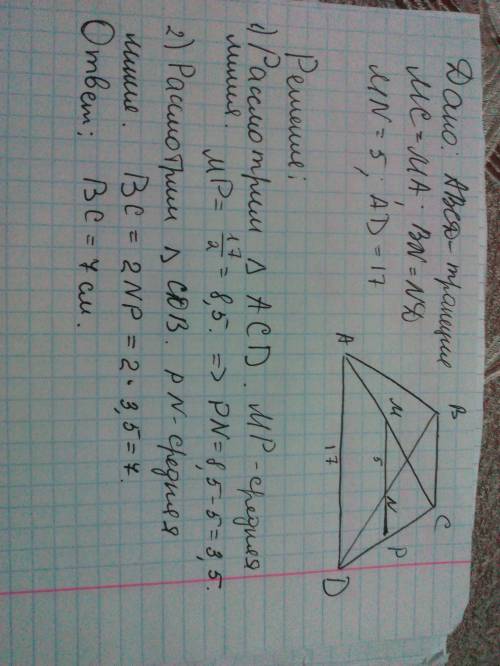 Дано: ABCD-трапеция
MC=MA; BN=ND
MN=5; AD=17
Решение:
1) Рассмотрим Δ ACD. MP-средняя
линия. MP=17/2=8,5. => PN=8,5-5=3,5.
2) Рассмотрим Δ CDB. PN-средняя
линия. BC=2NP=2·3,5=7.
Ответ: BC=7см.
A
B
C
D
M
N
P
5
17